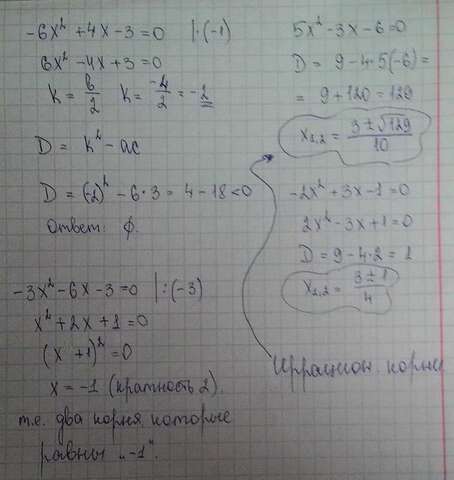 -6x² + 4x - 3 = 0 | · (-1)
6x² - 4x + 3 = 0
K = b/2 K = -4/2 = -2
D = K² - ac
D = (-2)² - 6·3 = 4 - 18 < 0
Ответ: ∅.
-3x² - 6x - 3 = 0 | : (-3)
x² + 2x + 1 = 0
(x + 1)² = 0
x = -1 (кратность 2).
т.е. два корня которые
равны „-1".
5x² - 3x - 6 = 0
D = 9 - 4·5(-6) =
= 9 + 120 = 129
x₁,₂ = (3 ± √129)/10
-2x² + 3x - 1 = 0
2x² - 3x + 1 = 0
D = 9 - 4·2 = 1
x₁,₂ = (3 ± 1)/4
Иррацион. корни